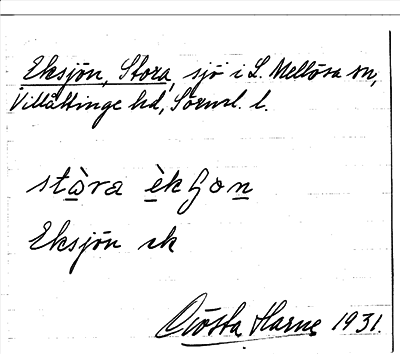 Eksjön, Stora, sjö i L. Mellösa sn,
Villåttinge hd, Sörml. l.
stàra èkʃon
Eksjön ek
Gösta Harne 1931.